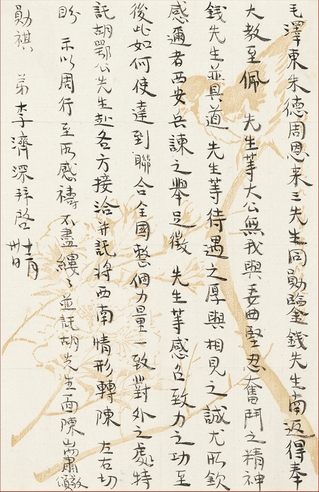 毛澤東朱德周恩来三先生同勛臨金錢先生南返得奉
大教至佩 先生等大公無我與委曲堅忍奮鬥之精神
錢先生並具道 先生等待遇之厚與相見之誠尤所欽
感邇者西安兵諫之舉足徵 先生等感召致力之功至
後此如何使達到聯合全國整個力量一致對外之處特
託胡鄂公先生赴各方接洽并託將西南情形轉陳 左右切
盼 示以周行至為感禱不盡縷縷並託胡先生面陳耑肅敬
勛祺 弟李濟深拜啓 十二月
卅日